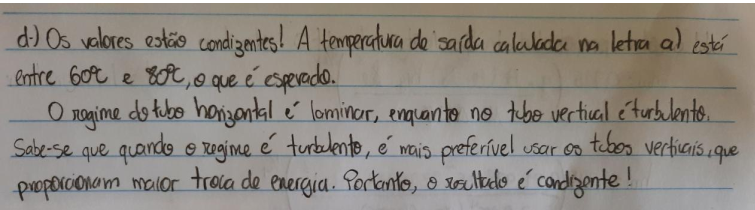 d-) Os valores estão condizentes! A temperatura de saída calculada na letra a) está
entre 60°C e 80°C, o que é esperado.
O regime do tubo horizontal é laminar, enquanto no tubo vertical é turbulento.
Sabe-se que quando o regime é turbulento, é mais preferível usar os tubos verticais, que
proporcionam maior troca de energia. Portanto, o resultado é condizente!